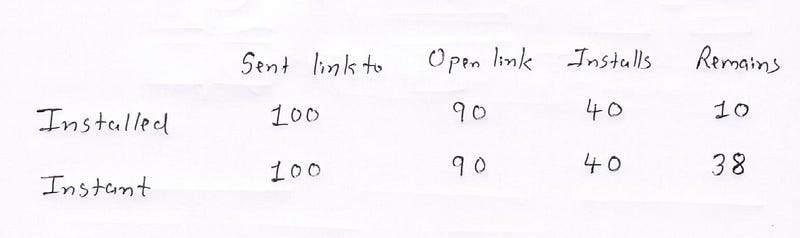 Sent link to Open link Installs Remains
Installed 100 90 40 10
Instant 100 90 40 38